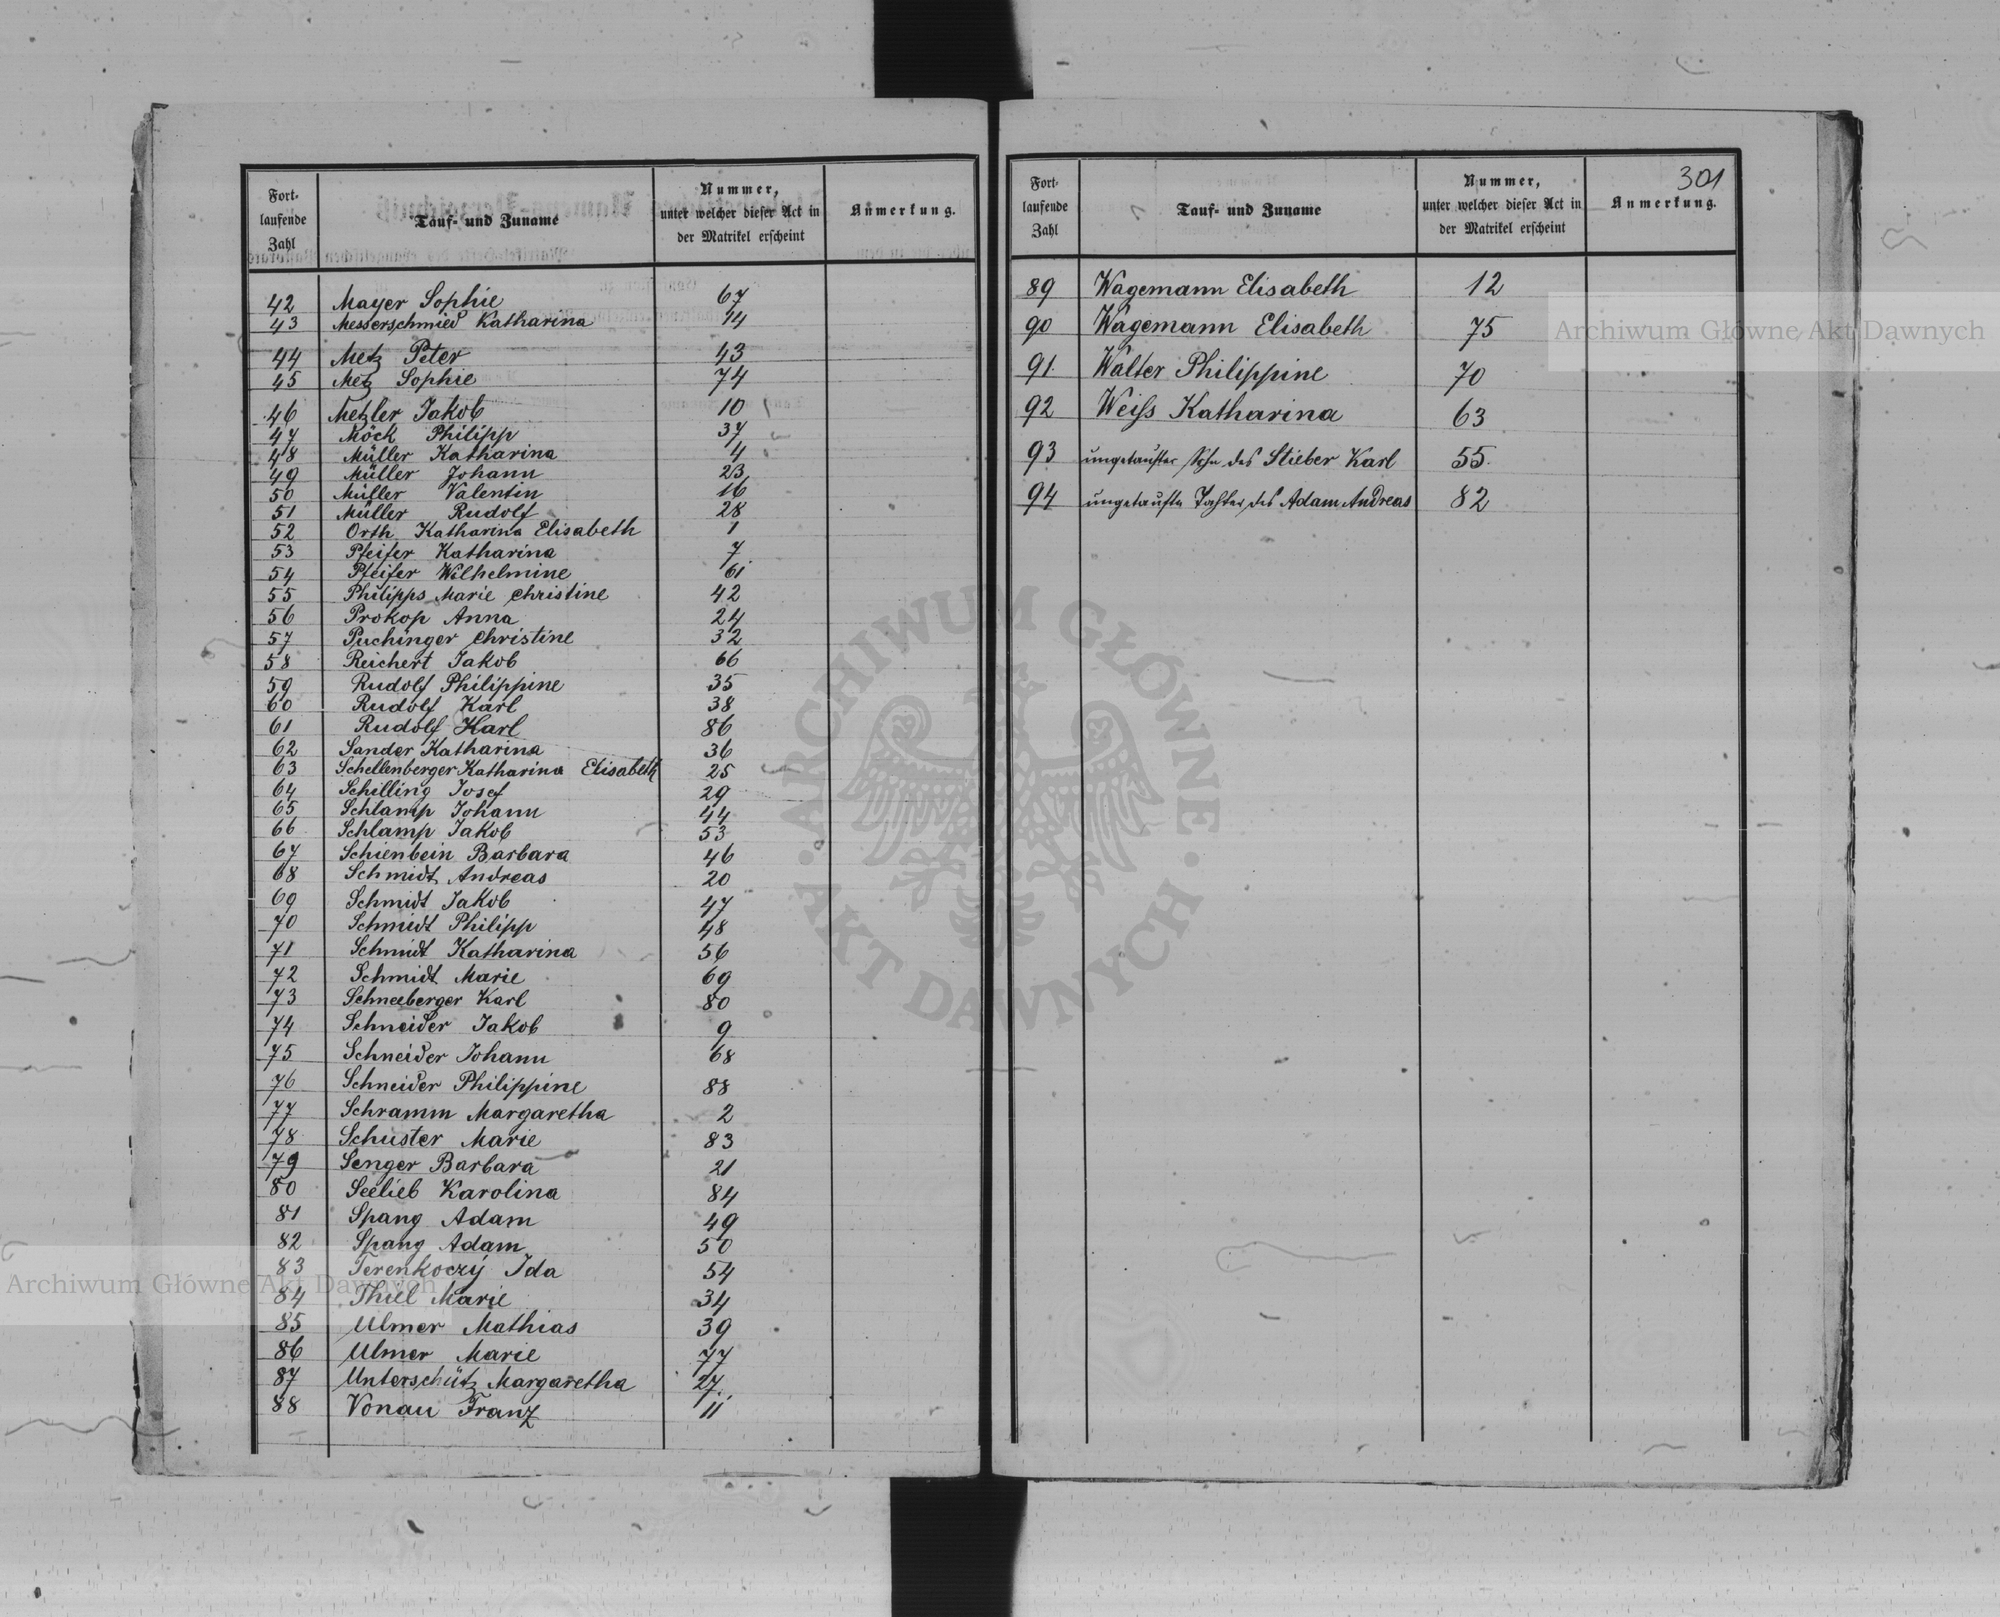 301
Fort-
laufende
Zahl
Tauf- und Zuname
Nummer,
unter welcher dieser Act in
der Matrikel erscheint
Anmerkung.
42 Mayer Sophie 67
43 Messerschmied Katharina 14
44 Metz Peter 43
45 Metz Sophie 74
46 Metzler Jakob 10
47 Möck Philipp 37
48 Müller Katharina 4
49 Müller Johann 23
50 Müller Valentin 16
51 Müller Rudolf 28
52 Orth Katharina Elisabeth 1
53 Pfeifer Katharina 7
54 Pfeifer Wilhelmine 61
55 Philipps Marie Christine 42
56 Prokop Anna 24
57 Puchinger Christine 32
58 Reichert Jakob 66
59 Rudolf Philippine 35
60 Rudolf Karl 38
61 Rudolf Karl 86
62 Sander Katharina 36
63 Schellenberger Katharina Elisabeth 25
64 Schilling Josef 29
65 Schlamp Johann 44
66 Schlamp Jakob 53
67 Schienbein Barbara 46
68 Schmidt Andreas 20
69 Schmidt Jakob 47
70 Schmidt Philipp 48
71 Schmidt Katharina 56
72 Schmidt Marie 69
73 Schneeberger Karl 80
74 Schneider Jakob 9
75 Schneider Johann 68
76 Schneider Philippine 88
77 Schramm Margaretha 2
78 Schuster Marie 83
79 Senger Barbara 21
80 Seelieb Karolina 84
81 Spang Adam 49
82 Spang Adam 50
83 Terenkoczy Ida 54
84 Thiel Marie 34
85 Ulmer Mathias 39
86 Ulmer Marie 77
87 Unterschütz Margaretha 27
88 Vonau Franz 11
Fort-
laufende
Zahl
Tauf- und Zuname
Nummer,
unter welcher dieser Act in
der Matrikel erscheint
Anmerkung.
89 Wagemann Elisabeth 12
90 Wagemann Elisabeth 75
91. Walter Philippine 70
92 Weiss Katharina 63
93 ungetaufter Sohn des Stieber Karl 55.
94 ungetaufte Tochter des Adam Andreas 82
Archiwum Główne Akt Dawnych
Archiwum Główne Akt Dawnych
ARCHIWUM GŁÓWNE · AKT DAWNYCH ·